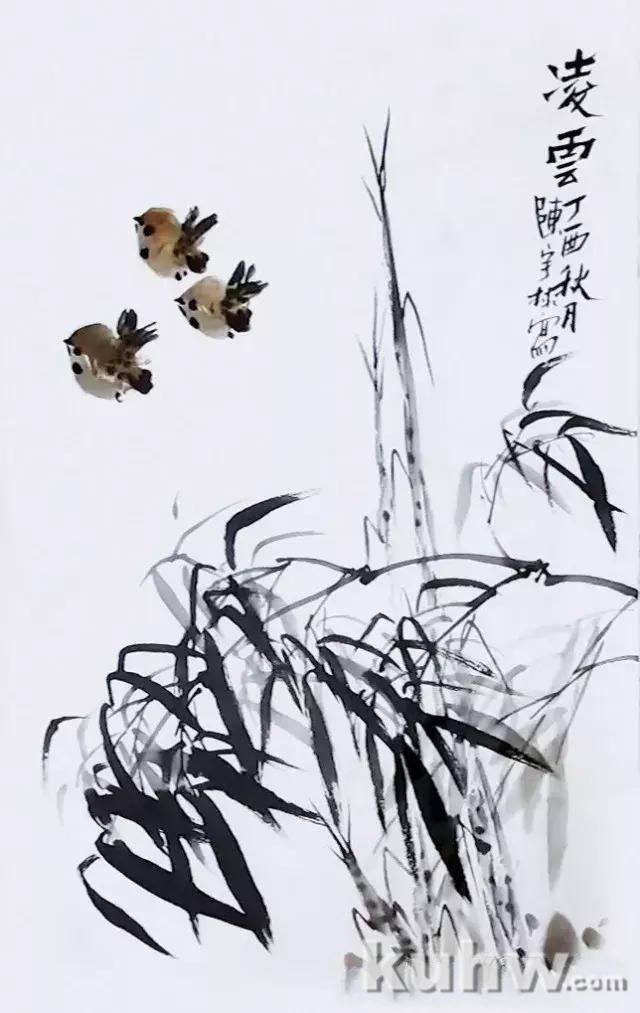 凌雲
丁酉秋月
陳宇林寫
kuhw.com